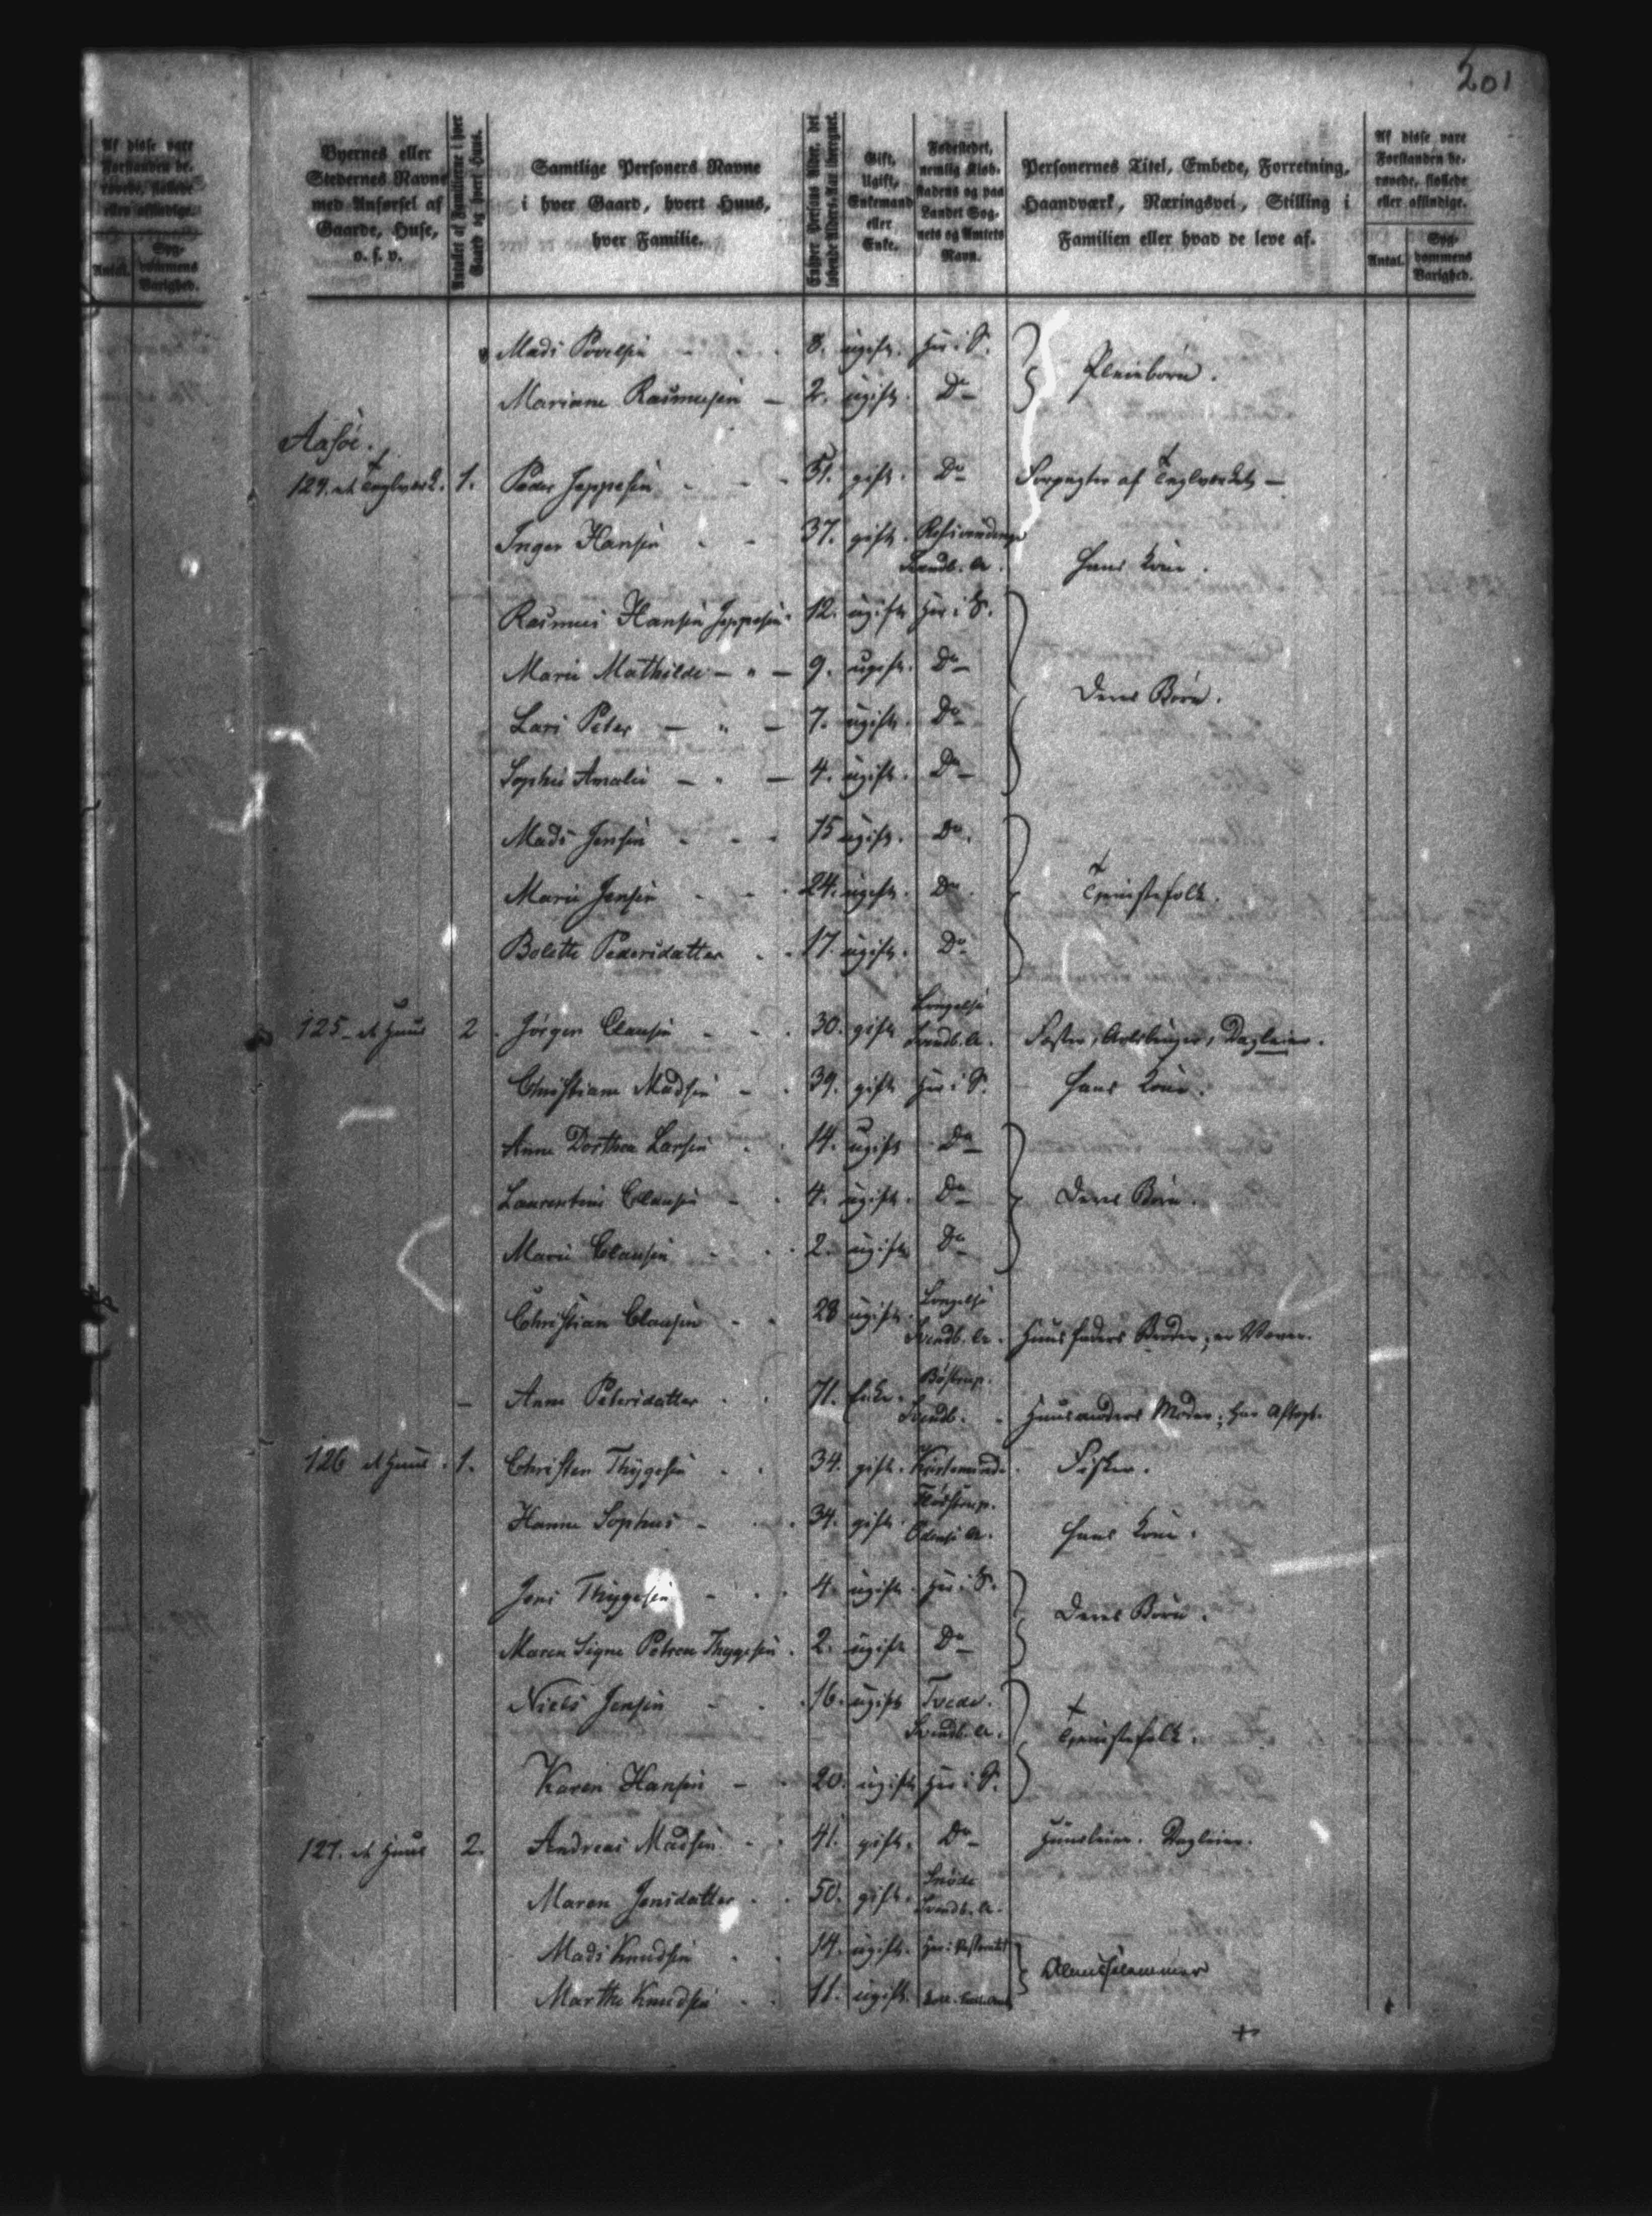 201
Af disse vare Forstanden berøvede, fjollede eller afsindige.
Antal.
Sygdommens Varighed.
Byernes eller Stedernes Navne med Anførsel af Gaarde, Huse, o. s. v.
Antallet af Familierne i hver Gaard og hvert Huus.
Samtlige Personers Navne i hver Gaard, hvert Huus, hver Familie.
Enhver Persons Alder, det løbende Alders-Aar iberegnet.
Gift, Ugift, Enkemand eller Enke.
Fødestedet, nemlig Kiøbstadens og paa Landet Sognets og Amtets Navn.
Personernes Titel, Embede, Forretning, Haandværk, Næringsvei, Stilling i Familien eller hvad de leve af.
Af disse vare Forstanden berøvede, fjollede eller afsindige.
Antal.
Sygdommens Varighed.
Mads Povelsen - - 8. ugift. Her i S.
Pleiebørn.
Mariane Rasmusen - 2. ugift. Do -
Aasøe.
124. et Teglværk. 1. Peder Jeppesen - - 51. gift. Do Forpagter af Teglværket -
Inger Hansen - - 37. gift.
Svendb. A. Hans Kone.
Rasmus Hansen Jeppesen. 12. ugift Her i S.
Marie Mathilde - " - 9. ugift. Do -
Deres Børn.
Lars Peter - " - 7. ugift. Do -
Sophie Amalie - " - 4. ugift. Do -
Mads Jensen - - 15 ugift. Do.
Marie Jensen - - 24. ugift. Do. Tjenistefolk.
Bolette Pedersdatter - - 17. ugift. Do
Longelse
125 - et Huus 2. Jørgen Clausen - - 30. gift Svendb. A. Dagleier.
Christiane Madsen - - 39. gift Her i S. Hans Kone.
Anne Dorthea Larsen - 14. ugift Do -
Laurentius Clausen - 4. ugift. Do - Deres Børn.
Marie Clausen - - 2. ugift Do -
Longelse
Christian Clausen - - 28 ugift. Svendb. A. Huusfaders Broder, er Væver.
Bøstrup.
- Anne Petersdatter - - 71. Enke. Svendb. Moder; har Aftægt.
126 et Huus. 1. Christen Thygesen - - 34. gift. Kierteminde. Fisker.
Hanne Sophus - - 34. gift. Odense A. Hans Kone.
Jens Thygesen - - 4. ugift. Her i S.
Deres Børn.
Maren Signe Petrea Thygesen. 2. ugift Do -
Niels Jensen - - 16. ugift Tvede.
Svendb. A. Tjenistefolk.
Karen Hansen - - 20. ugift Her i S.
127. et Huus 2. Andreas Madsen - - 41. gift. Do - Huusleier. Dagleier.
Snøde
Maren Jensdatter - - 50. gift. Svendb. A.
Mads Knudsen - - 14. ugift.
Almisselemmer
Marthe Knudsen - - 11. ugift.